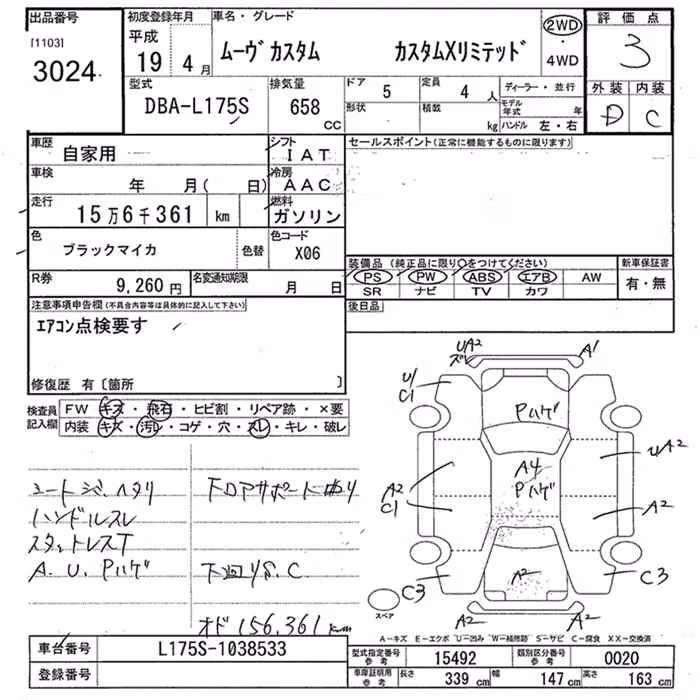 出品番号
[1103]
3024
初度登録年月
平成
19 4月
車名・グレード
ムーヴ カスタム カスタムXリミテッド
2WD
・
4WD
評価点
3
外装 内装
D C
型式
DBA-L175S
排気量
658
CC
ドア 5
形状
定員 4 人
積載 kg
ディーラー・並行
モデル年式 年
ハンドル 左・右
車歴
自家用
シフト
IAT
車検
年 月( 日)
冷房
AAC
走行
15万6千361 km
燃料
ガソリン
色
ブラックマイカ
色替
色コード
X06
R券
9,260円
名変通知期限
月 日
セールスポイント(正常に機能するものに限ります)
装備品(純正品に限り○をつけてください)
PS PW ABS エアB AW
SR ナビ TV カワ
新車保証書
有・無
後日品
注意事項申告欄(不具合内容等は具体的に記入して下さい)
エアコン点検要す
修復歴 有〔箇所 〕
検査員
記入欄
FW キズ・飛石・ヒビ割・リペア跡・×要
内装 キズ・汚レ・コゲ・穴・スレ・キレ・破レ
シートジミ、ヘタリ
ハンドルスレ
スタットレスT
A. U. Pハゲ
下回りS. C
オド 156,361km
UA2
ズレ
A1
U1
C1
Pハゲ
UA2
A4
Pハゲ
A2
C1
A2
C3
A2
C3
A2
A2
スペア
A－キズ E－エクボ U－凹み W－補修跡 S－サビ C－腐食 XX－交換済
車台番号
L175S-1038533
登録番号
型式指定番号
参考
15492
類別区分番号
参考
0020
車庫証明用
参考
長さ 339 cm
幅 147 cm
高さ 163 cm